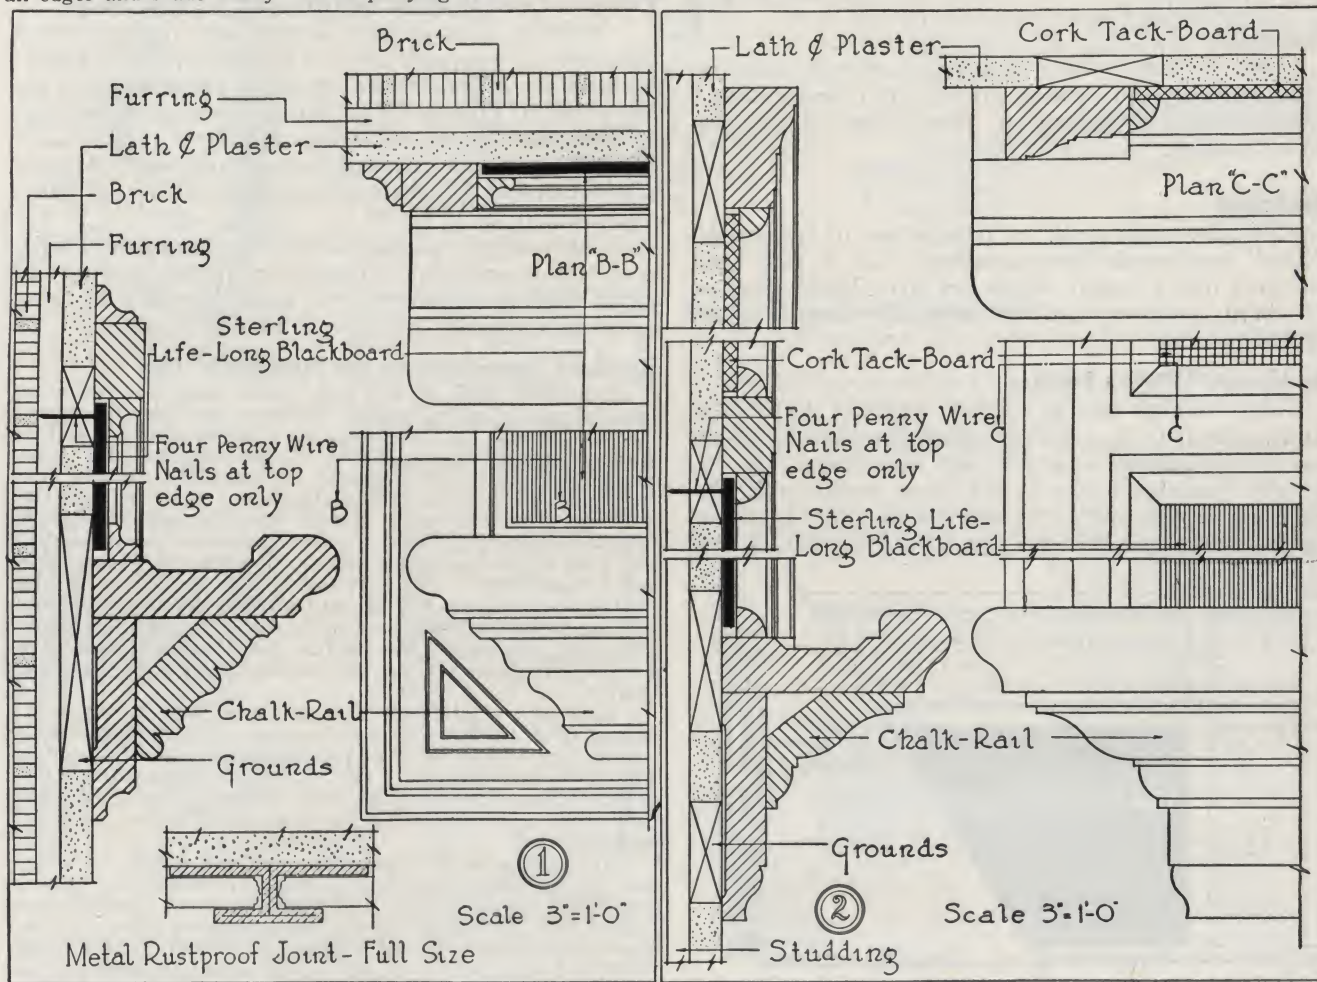 Brick
Furring
Lath & Plaster
Brick
Furring
Plan "B-B"
Sterling
Life-Long Blackboard
Four Penny Wire
Nails at top
edge only
B
B
Chalk-Rail
Grounds
1
Scale 3"=1'-0"
Metal Rustproof Joint - Full Size
Lath & Plaster
Cork Tack-Board
Plan "C-C"
Cork Tack-Board
Four Penny Wire
Nails at top
edge only
C
C
Sterling Life-
Long Blackboard
Chalk-Rail
Grounds
2
Scale 3"=1'-0"
Studding